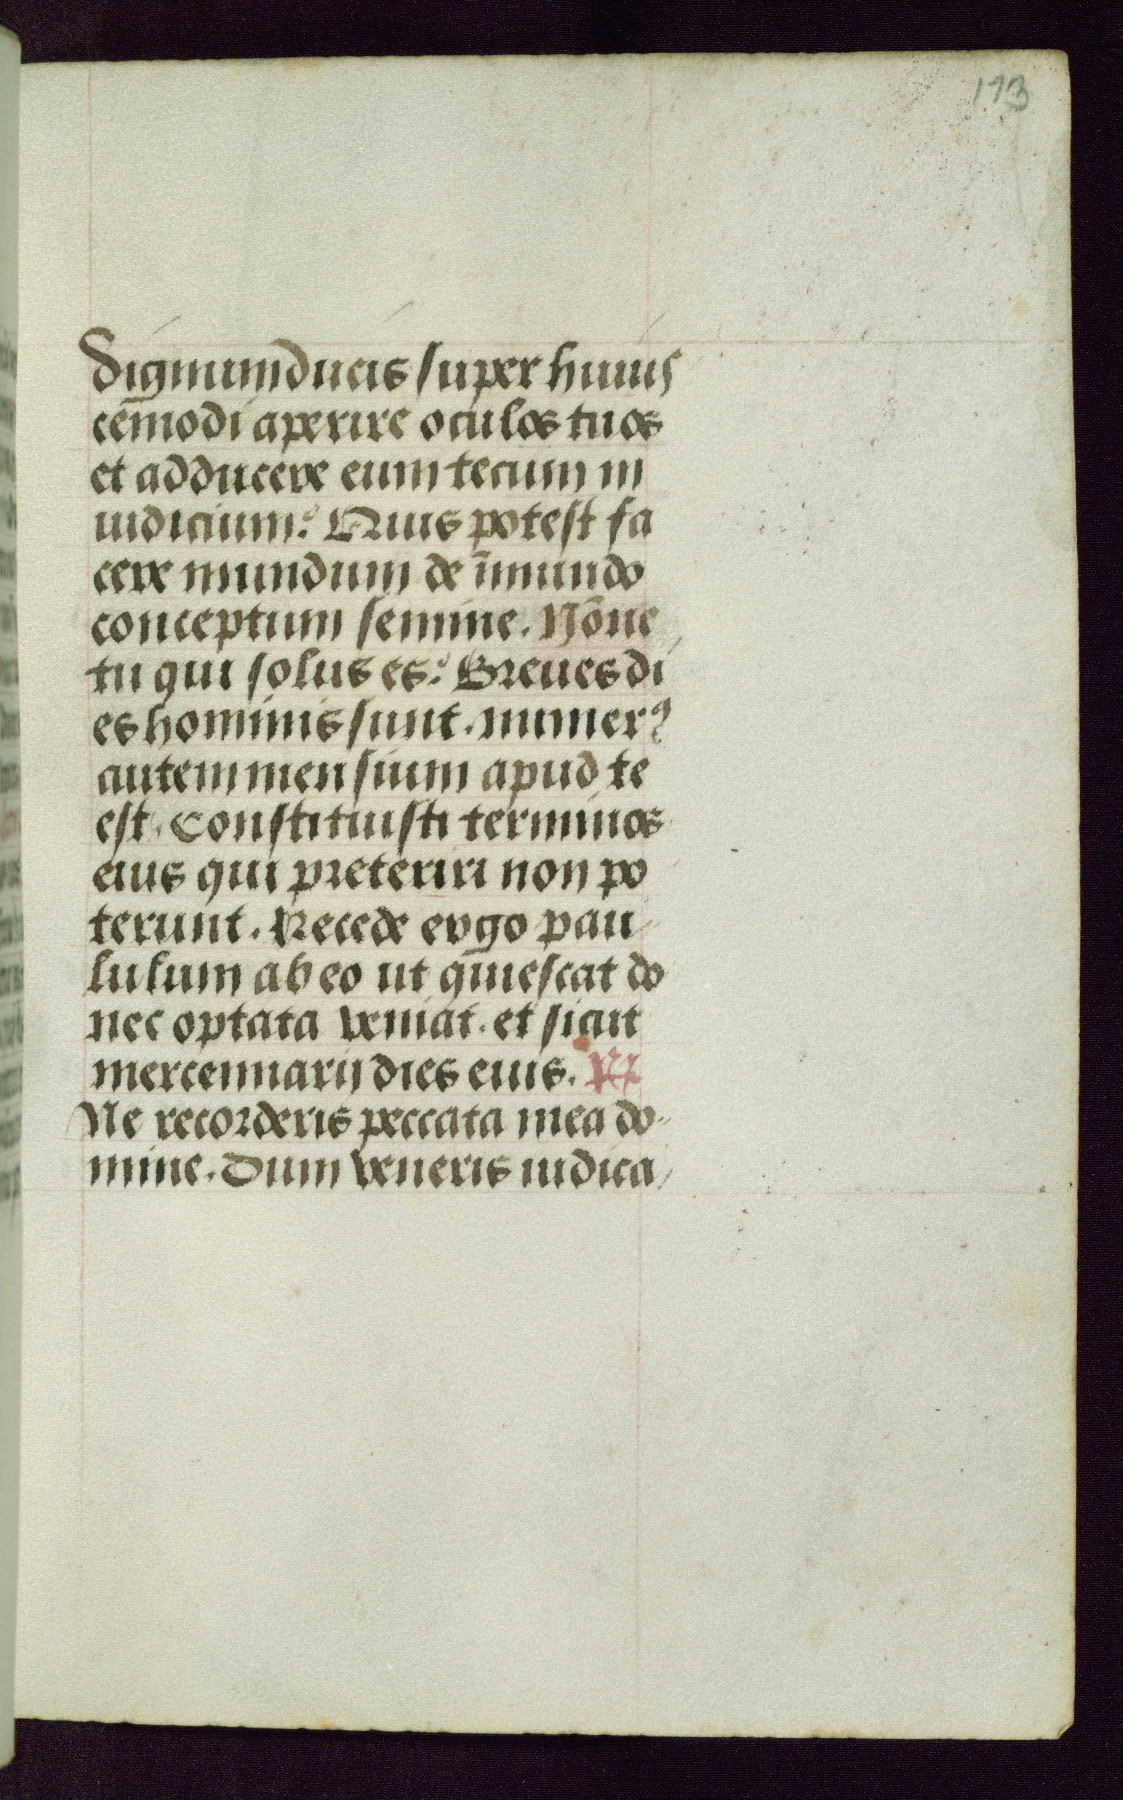 113
Dignum ducis super huius
cēmodi aperire oculos tuos
et adducere eum tecum in
iudicium? Quis potest fa
cere mundum de īmundo
conceptum semine. Nōne
tu qui solus es? Breues di
es hominis sunt. numerꝰ
autem mensium apud te
est. Constituisti terminos
eius qui preteriri non po
terunt. Recede ergo pau
lulum ab eo ut quiescat do
nec optata veniat. et sicut
mercennarij dies eius. R
Ne recorderis peccata mea do
mine. Dum veneris iudica